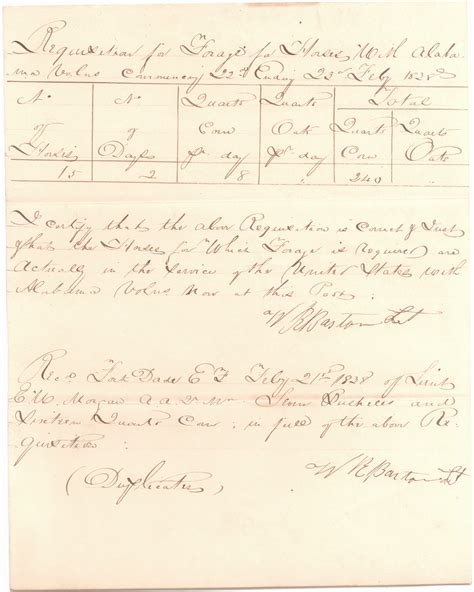 Requisition for Forage for Horses With Alaba-
ma Volns Commencing 22nd Ending 23rd Feby 1838
No of Horses | No of Days | Quarts Corn pr day | Quarts Oats pr day | Total Quarts Corn | Total Quarts Oats
15 | 2 | 8 | | 240 |
I certify that the above Requisition is correct & Just
& that the Horses for Which Forage is required are
Actually in the Service of the United States with
Alabama Volns Now at this Post.
W R Barton Lt
Recd Fort Dade E F Feby 21st 1838 of Lieut
E W Morgan A A Q M Seven Bushels and
Sixteen Quarts Corn in full of the above Re-
quisition
W R Barton Lt
(Duplicates)